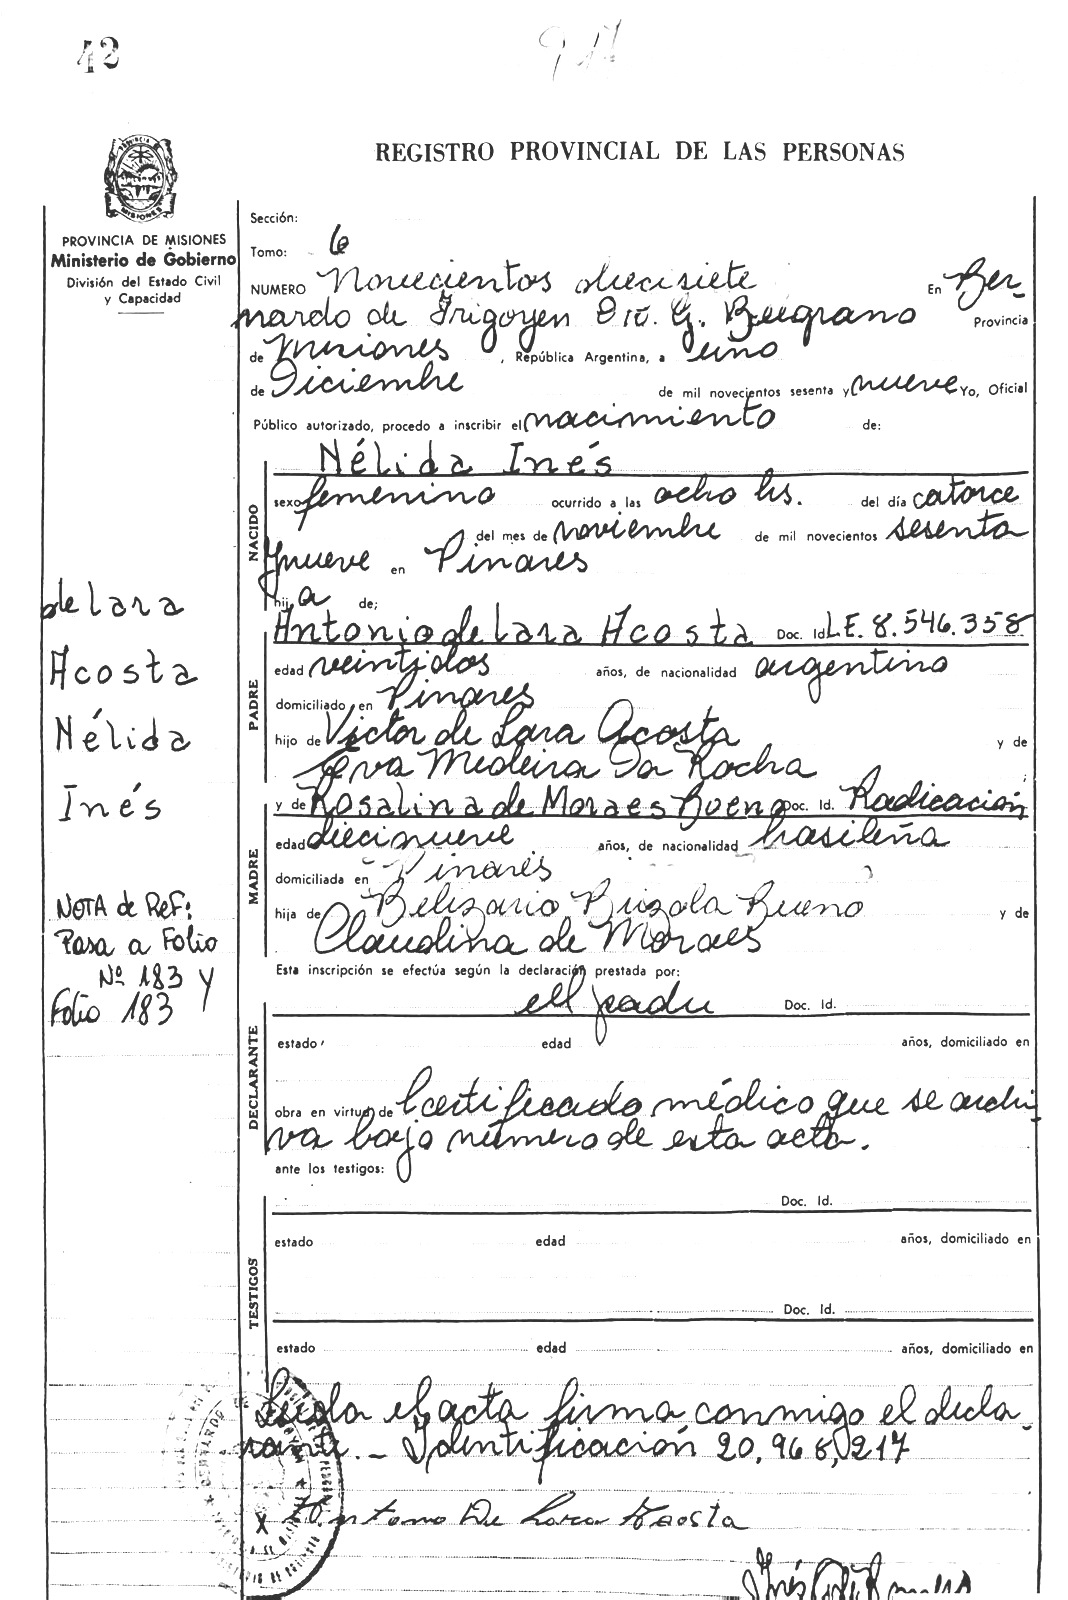 42
917
REGISTRO PROVINCIAL DE LAS PERSONAS
PROVINCIA
MISIONES
PROVINCIA DE MISIONES
Ministerio de Gobierno
División del Estado Civil
y Capacidad
Sección:
Tomo: 6
NUMERO Novecientos diecisiete En Ber-
nardo de Irigoyen Dto. G. Belgrano Provincia
de Misiones, República Argentina, a uno
de Diciembre de mil novecientos sesenta y nueve Yo, Oficial
Público autorizado, procedo a inscribir el nacimiento de:
NACIDO
Nélida Inés
sexo femenino ocurrido a las ocho hs. del día catorce
del mes de noviembre de mil novecientos sesenta
y nueve en Pinares
hija de;
de Lara
Acosta
Nélida
Inés
PADRE
Antonio de Lara Acosta Doc. Id. L.E. 8.546.358
edad veintidos años, de nacionalidad argentino
domiciliado en Pinares
hijo de Victor de Lara Acosta y de
Eva Medeira Da Rocha
MADRE
y de Rosalina de Moraes Bueno Doc. Id. Radicación
edad diecinueve años, de nacionalidad brasileña
domiciliada en Pinares
hija de Belizario Brizola Bueno y de
Claudina de Moraes
NOTA de Ref:
Pasa a Folio
Nº 183 y
Folio 183
Esta inscripción se efectúa según la declaración prestada por:
DECLARANTE
el padre Doc. Id.
estado edad años, domiciliado en
obra en virtud de Certificado médico que se archi-
va bajo número de esta acta.
ante los testigos:
TESTIGOS
Doc. Id.
estado edad años, domiciliado en
Doc. Id.
estado edad años, domiciliado en
Leida el acta firma conmigo el decla-
rante. - Identificación 20.968.217
X Antonio De Lara Acosta